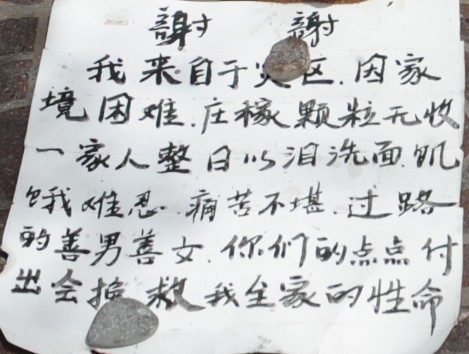 謝 謝
我来自于灾区.因家
境困难.庄稼颗粒无收
一家人整日以泪洗面.饥
饿难忍.痛苦不堪.过路
的善男善女.你们的点点付
出会换救我全家的性命